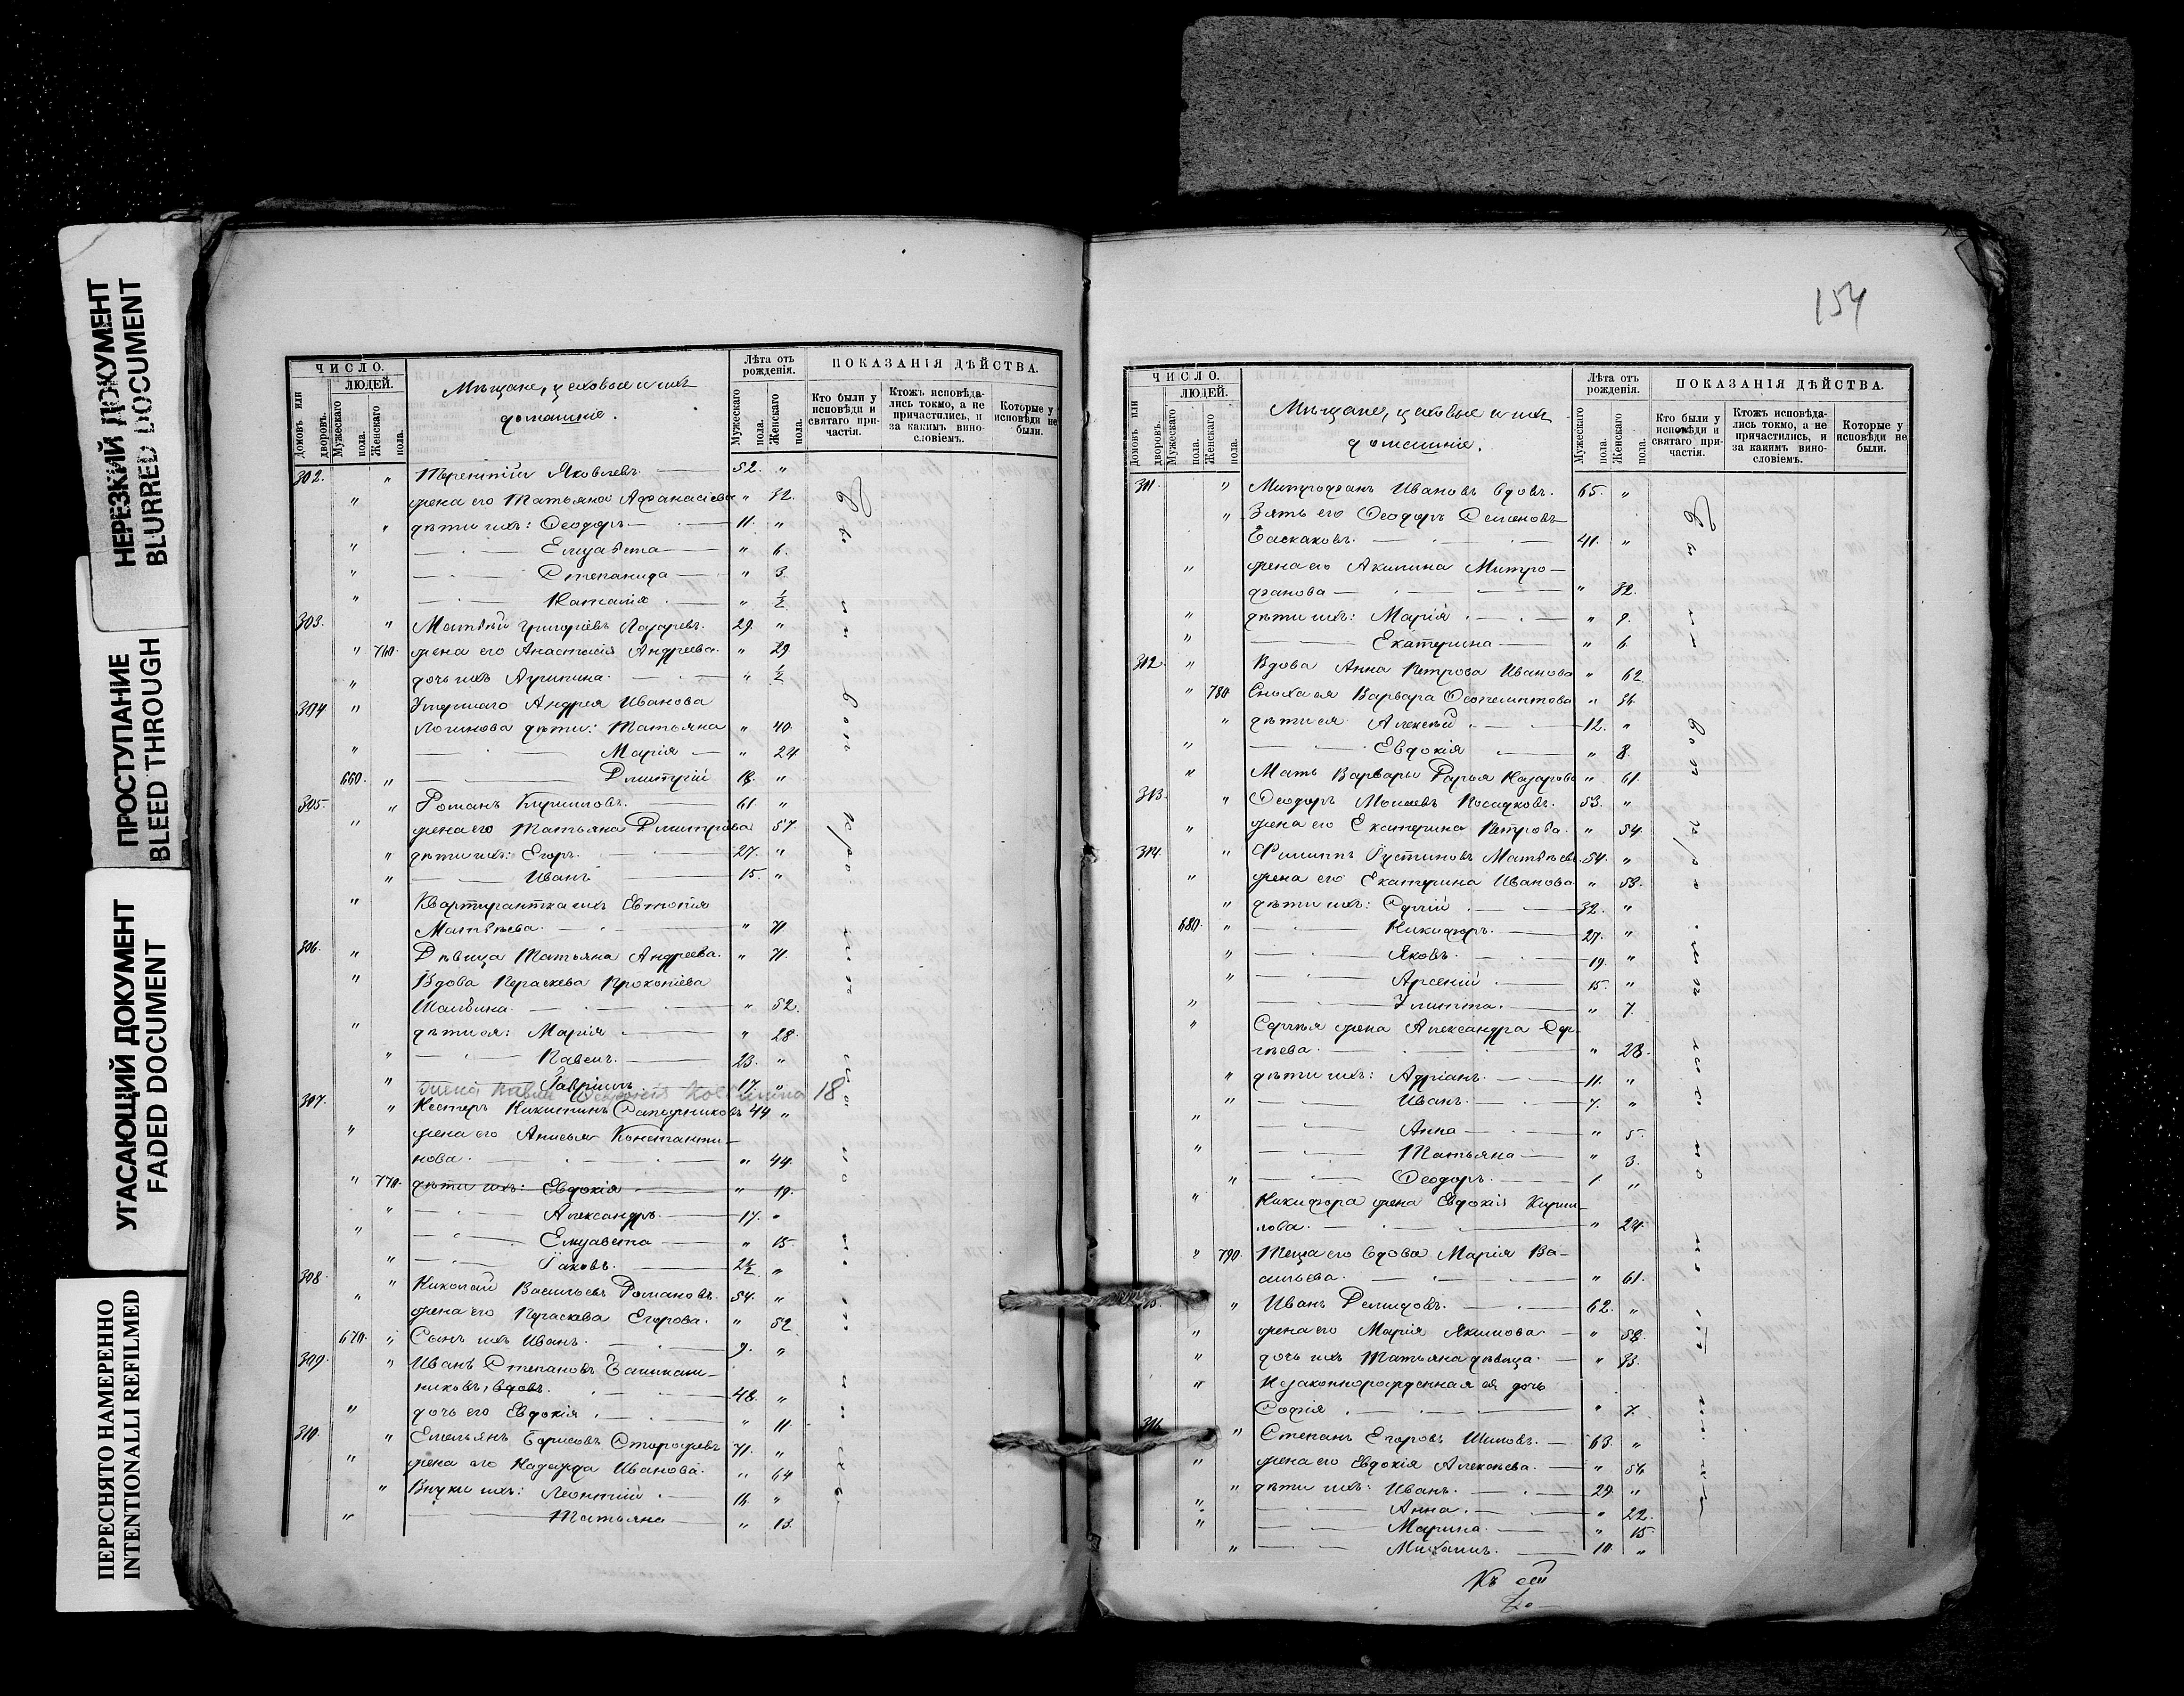 НЕРЕЗКИЙ ДОКУМЕНТ
BLURRED DOCUMENT
ПРОСТУПАНИЕ
BLEED THROUGH
УГАСАЮЩИЙ ДОКУМЕНТ
FADED DOCUMENT
ПЕРЕСНЯТО НАМЕРЕННО
INTENTIONALLI REFILMED
ЧИСЛО.
ЛЮДЕЙ.
Домовъ или дворовъ.
Мужескаго пола.
Женскаго пола.
Мѣщане, цеховые и ихъ
домашніе.
Лѣта отъ рожденія.
Мужескаго пола.
Женскаго пола.
ПОКАЗАНІЯ ДѢЙСТВА.
Кто были у исповѣди и святаго причастія.
Ктожъ исповѣдались токмо, а не причастились, и за какимъ винословіемъ.
Которые у исповѣди не были.
302. " Терентій Яковлевъ. 52. "
" жена его Татьяна Аѳанасіева " 32.
" дѣти ихъ: Ѳеодоръ 11. "
" Елизавета " 6.
" Степанида " 3.
" Наталія " ½
303. " Матвѣй Григорьевъ Лазаревъ. 29. "
" 760. жена его Анастасія Андреева. " 29
" дочь ихъ Агрипина. " ½
304 " Умершаго Андрея Иванова
Логинова дѣти: Татьяна " 40.
" Марія " 24
660. " Димитрій 18. "
305. " Романъ Кириловъ. 61 "
" жена его Татьяна Димитріева " 57.
" дѣти ихъ: Егоръ. 27. "
" Иванъ 15. "
" Квартирантка ихъ Евтопія
Матвѣева. " 71
306. " Дѣвица Татьяна Андреева. " 71.
" Вдова Параскева Прокопіева
" 52.
" дѣти ея: Марія " 28.
" Павелъ. 23. "
" Гавріилъ. 17. "
жена Павла 18
307. " Несторъ Никитинъ Сапожниковъ 44 "
" жена его Анисья Константи-
нова. " 44.
" 770. дѣти ихъ: Евдокія " 19.
" Александръ. 17. "
" Елизавета " 15.
" Іаковъ. 2½ "
308. " Николай Васильевъ Романовъ. 54. "
" жена его Параскева Егорова. " 52
670. " Сынъ ихъ Иванъ. 9. "
309. " Иванъ Степановъ Башмаш-
никовъ, вдовъ. 48. "
" дочь его Евдокія " 11.
310. " Емельянъ Борисовъ Сторожевъ 71. "
" жена его Надежда Иванова. " 64
" Внуки ихъ: Леонтій. 16. "
" Татьяна " 13.
154
ЧИСЛО.
ЛЮДЕЙ.
Домовъ или дворовъ.
Мужескаго пола.
Женскаго пола.
Мѣщане, цеховые и ихъ
домашніе.
Лѣта отъ рожденія.
Мужескаго пола.
Женскаго пола.
ПОКАЗАНІЯ ДѢЙСТВА.
Кто были у исповѣди и святаго причастія.
Ктожъ исповѣдались токмо, а не причастились, и за какимъ винословіемъ.
Которые у исповѣди не были.
311. " Митрофанъ Ивановъ вдовъ. 65. "
" Зять его Ѳеодоръ Семеновъ
Баскаковъ. 41. "
" жена его Акилина Митро-
фанова " 32.
" дѣти ихъ: Марія " 9.
" Екатерина " 6.
312. " Вдова Анна Петрова Иванова " 62.
" 780. Сноха ея Варвара Ѳеопемптова " 36.
" дѣти ея Алексѣй 12. "
" Евдокія " 8.
" Мать Варвары Дарья Назарова " 61.
313. " Ѳеодоръ Моисеевъ Посадковъ. 53. "
" жена его Екатерина Петрова. " 54.
314. " Филиппъ Іустиновъ Матвѣевъ 54. "
" жена его Екатерина Иванова " 53.
" дѣти ихъ: Сергій 32. "
680. " Никифоръ. 27. "
" Яковъ. 19. "
" Арсеній 15. "
" Улитта. " 7.
" Сергѣя жена Александра Сер-
гѣева. " 28.
" дѣти ихъ: Адріанъ. 11. "
" Иванъ. 7. "
" Анна " 5.
" Татьяна " 3.
" Ѳеодоръ. 1 "
" Никифора жена Евдокія Кири-
лова. " 24.
" 790. Теща его вдова Марія Ва-
сильева. " 61.
" Иванъ Демидовъ. 62. "
" жена его Марія Якимова " 58.
" дочь ихъ Татьяна дѣвица. " 33.
" Незаконнорожденная ея дочь
Софія " 7.
316. " Степанъ Егоровъ Шиловъ. 63. "
" жена его Евдокія Алексѣева. " 56
" дѣти ихъ: Иванъ. 29. "
" Анна. " 22.
" Марина. " 15.
" Михаилъ. 10. "